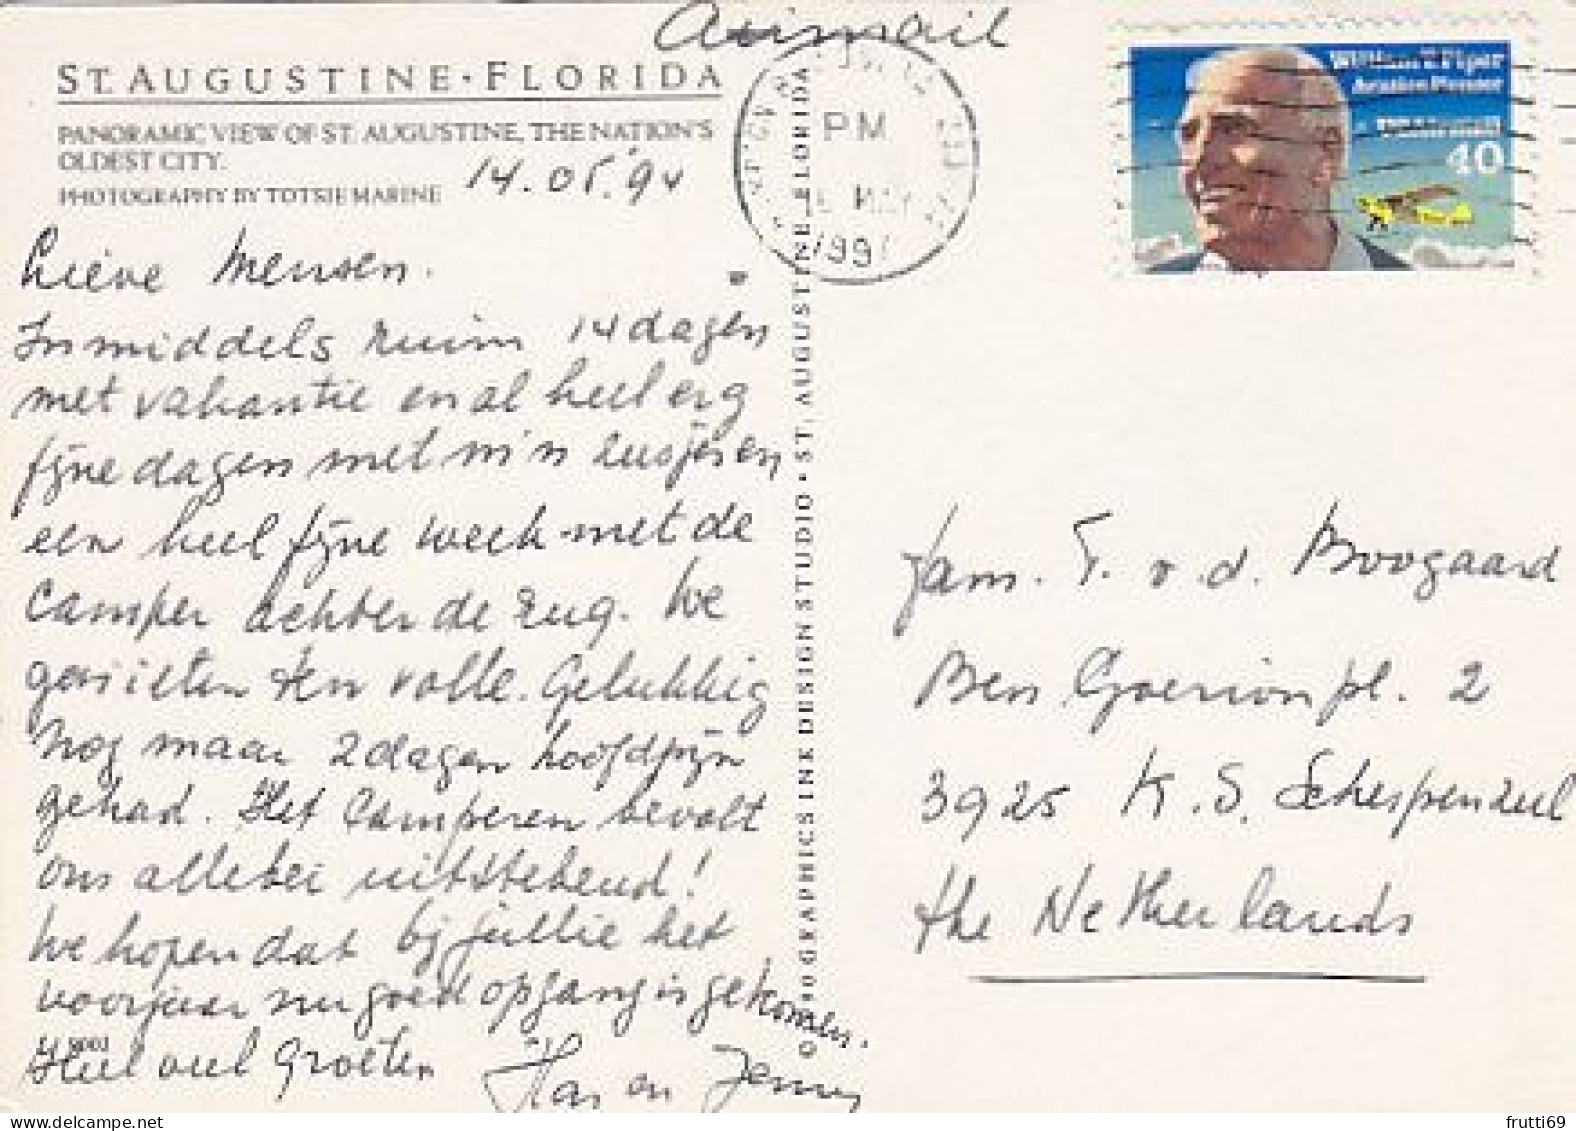 Airmail
ST. AUGUSTINE · FLORIDA
PANORAMIC VIEW OF ST. AUGUSTINE, THE NATION'S
OLDEST CITY.
PHOTOGRAPHY BY TOTSIE MARINE
14.05.'94
Lieve Mensen.
Inmiddels ruim 14 dagen
met vakantie en al heel erg
fijne dagen met m'n zusjes en
een heel fijne week met de
Camper achter de rug. We
genieten ten volle. Gelukkig
Nog maar 2 dagen hoofdpijn
gehad. Het Camperen bevalt
ons allebei uitstekend!
We hopen dat bij jullie het
voorjaar nu goed op gang is gekomen.
Heel veel Groeten
Han en Jenny
GRAPHICS INK DESIGN STUDIO · ST. AUGUSTINE, FLORIDA
PM
MAY
199
William T. Piper
Aviation Pioneer
40
Fam. T. v.d. Boogaard
Ben Goerionpl. 2
3925 K.S. Scherpenzeel
the Netherlands
frutti69